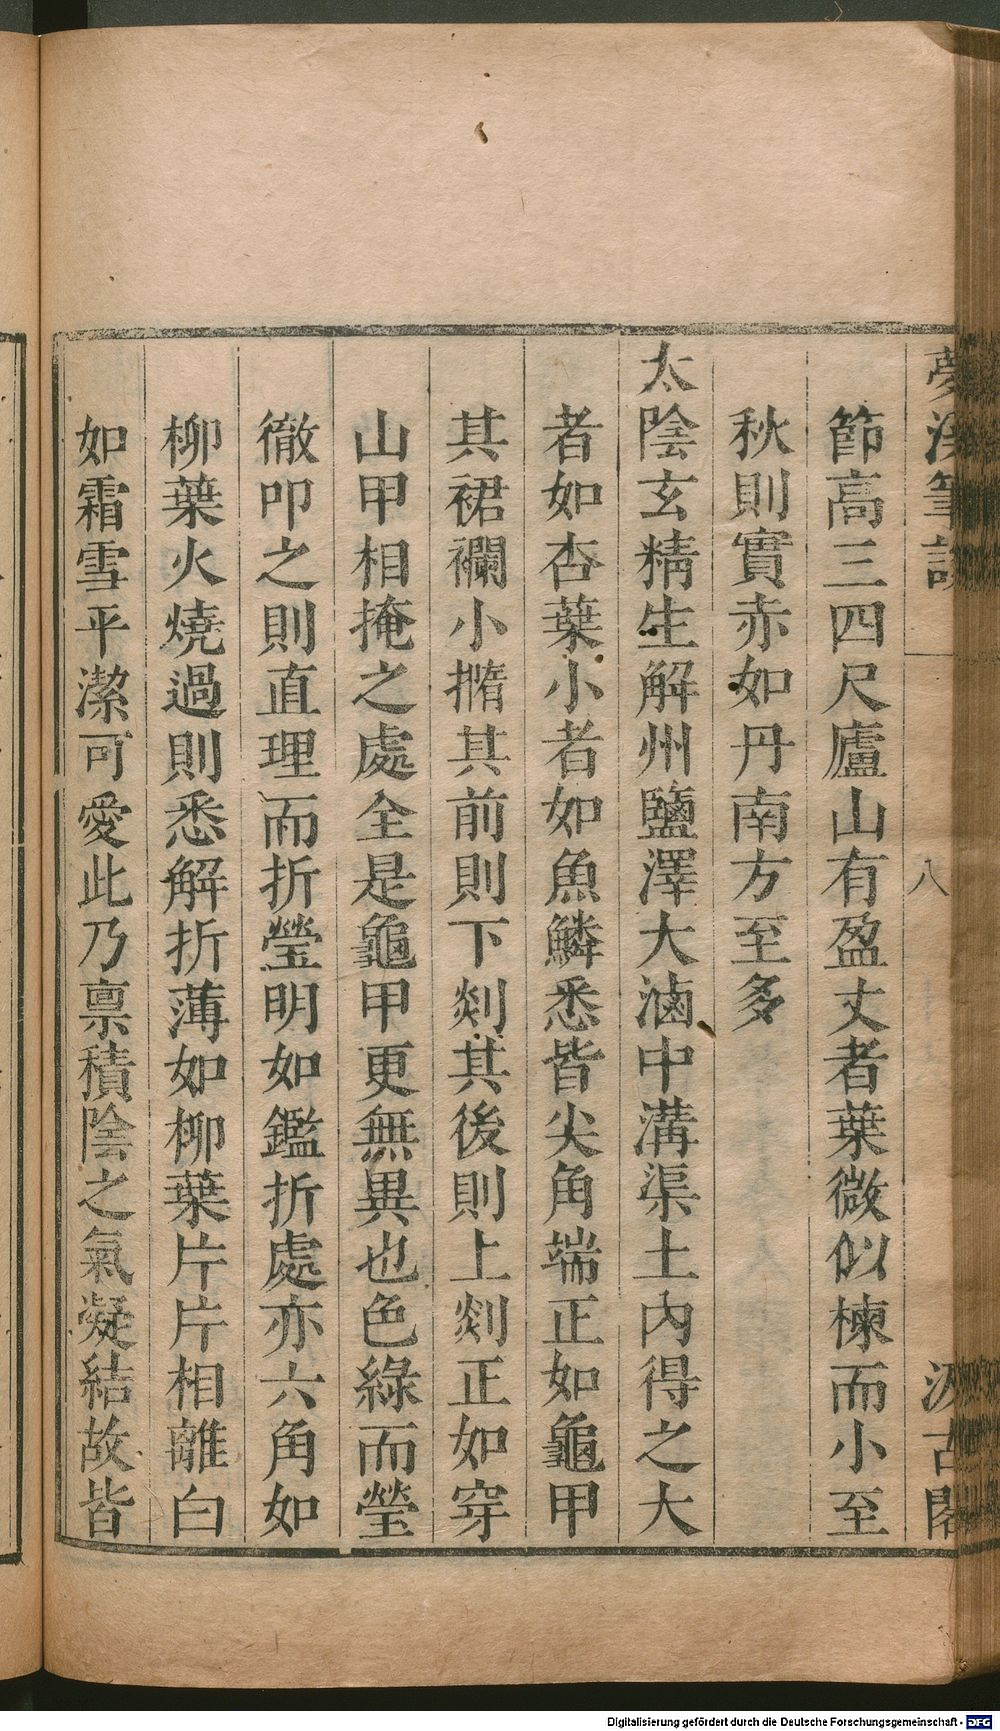 夢溪筆談 八 汲古閣
節高三四尺廬山有盈丈者葉微似楝而小至
秋則實赤如丹南方至多
太陰玄精生解州鹽澤大滷中溝渠土內得之大
者如杏葉小者如魚鱗悉皆尖角端正如龜甲
其裙襴小撱其前則下剡其後則上剡正如穿
山甲相掩之處全是龜甲更無異也色綠而瑩
徹叩之則直理而折瑩明如鑑折處亦六角如
柳葉火燒過則悉解折薄如柳葉片片相離白
如霜雪平潔可愛此乃禀積陰之氣凝結故皆
Digitalisierung gefördert durch die Deutsche Forschungsgemeinschaft - DFG